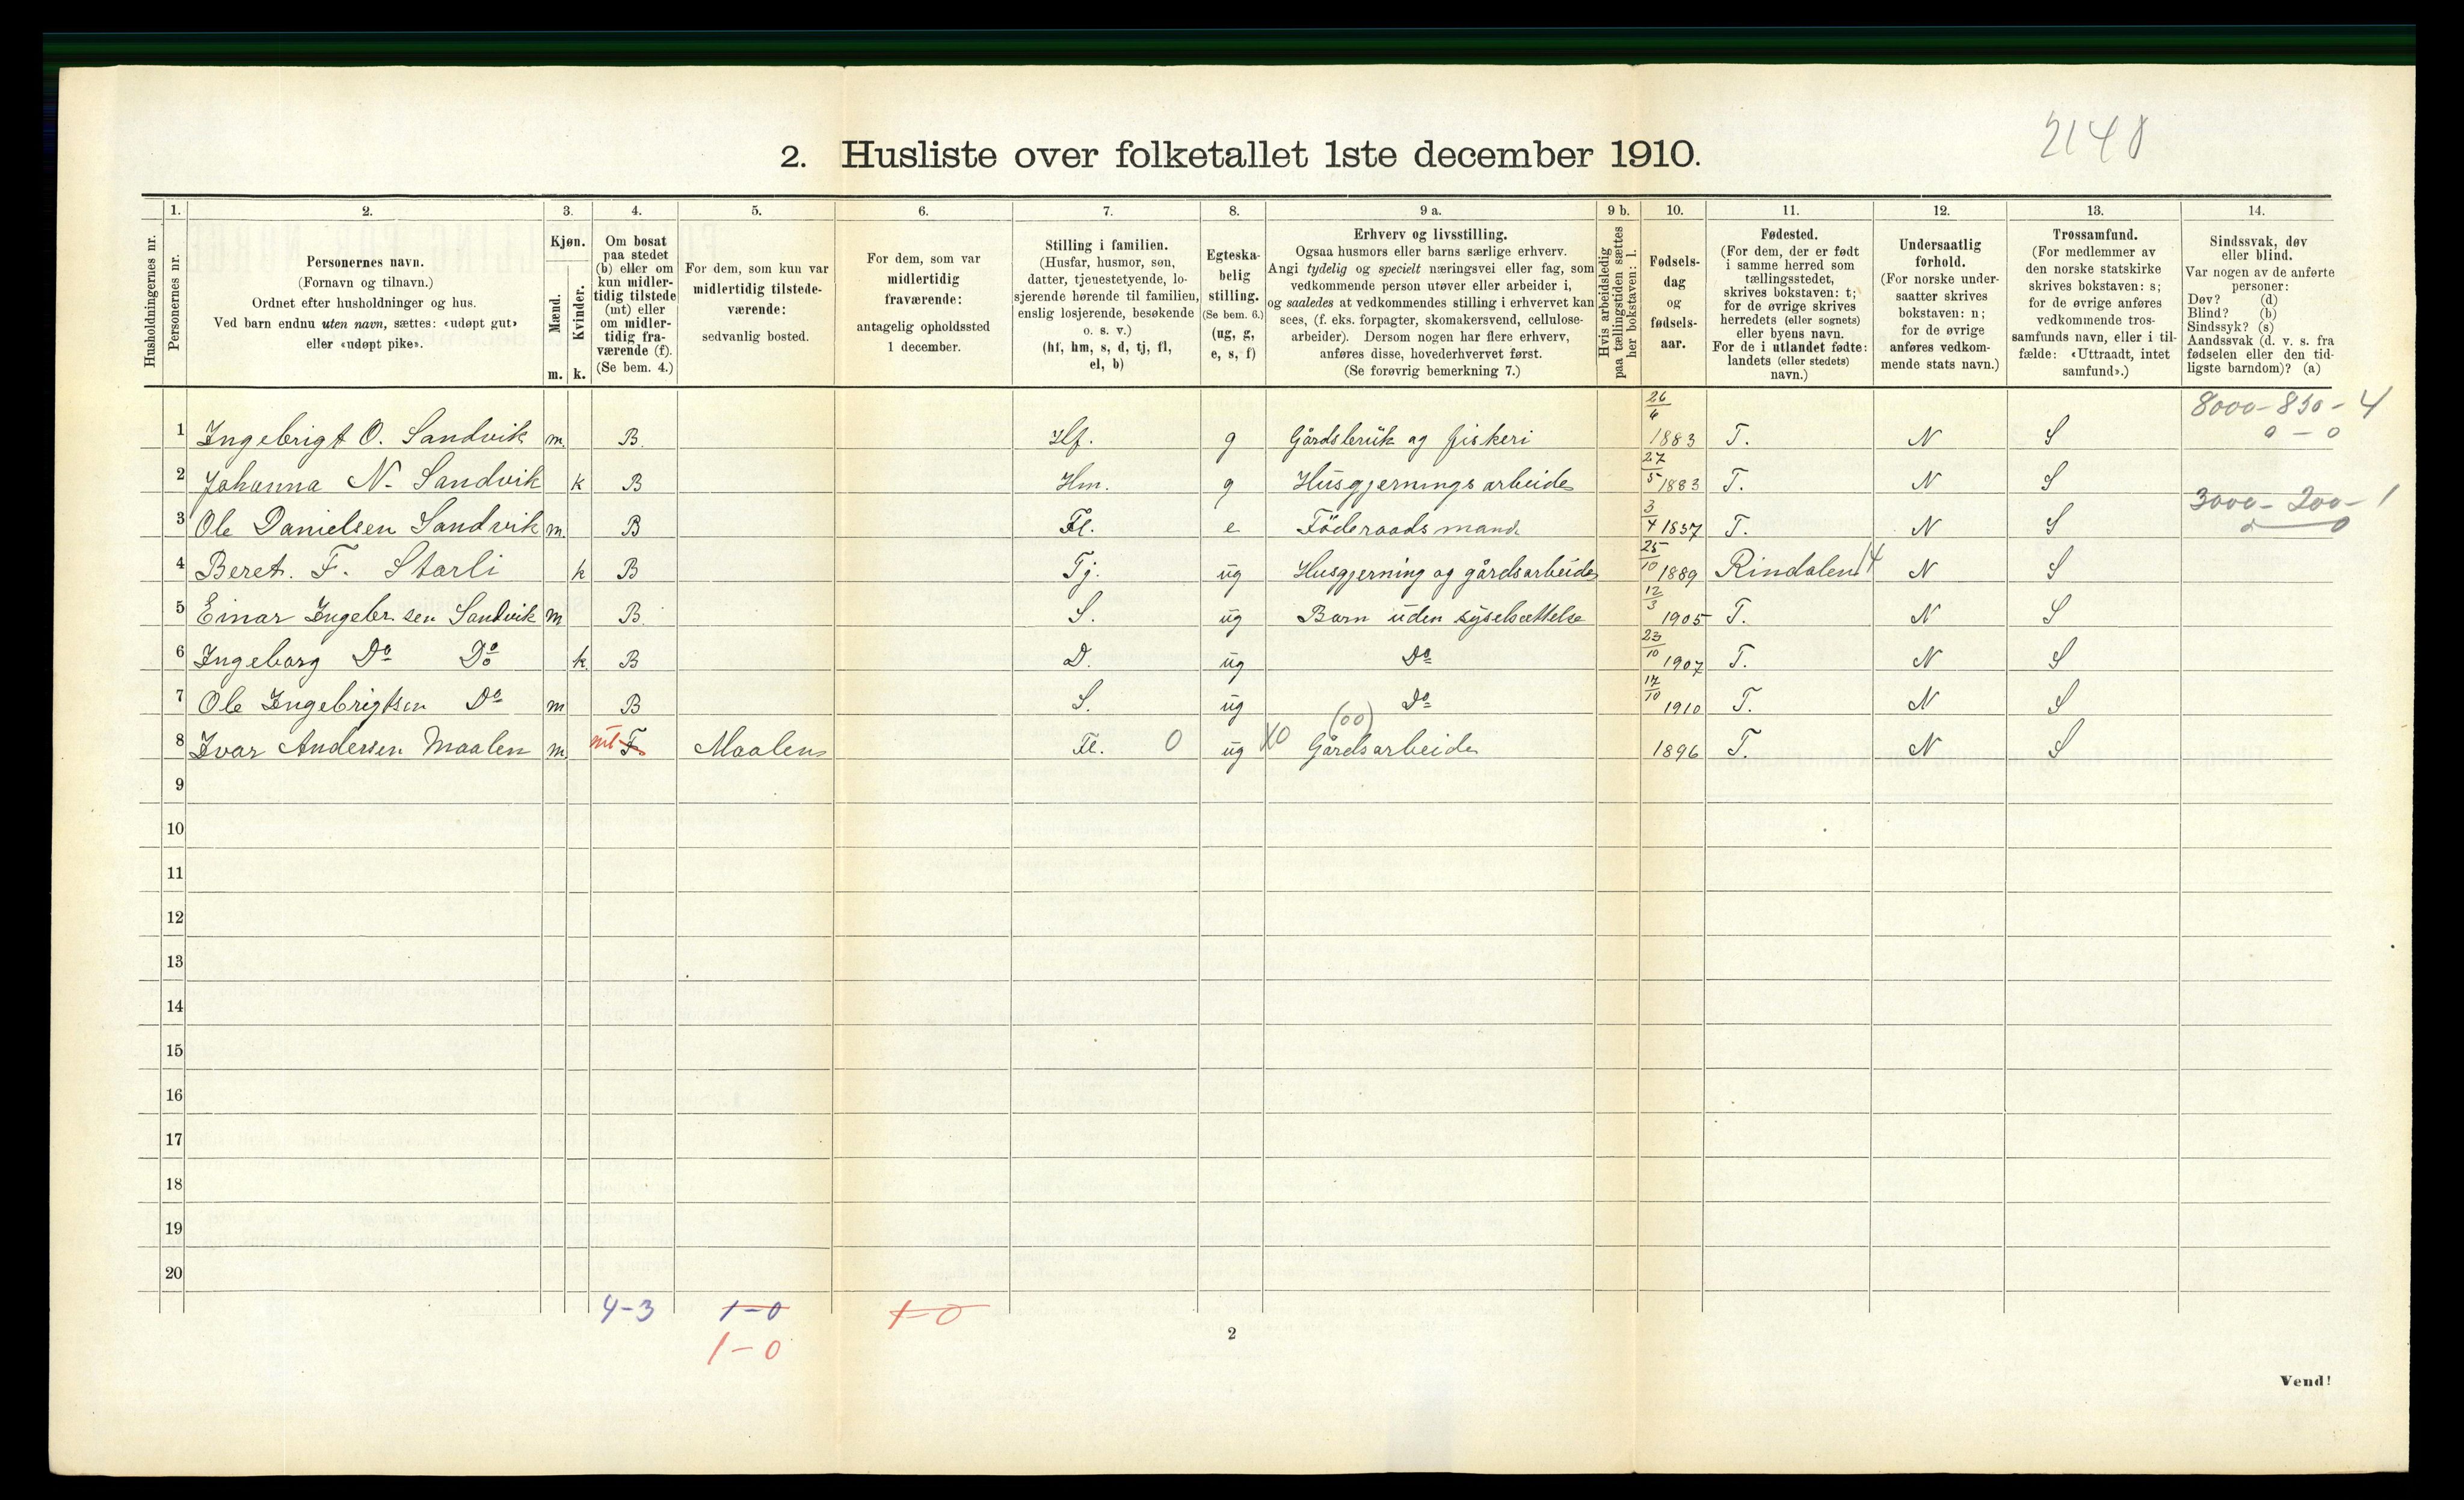 2148
2. Husliste over folketallet 1ste december 1910.
Husholdningernes nr.
1.
Personernes nr.
2.
Personernes navn.
(Fornavn og tilnavn.)
Ordnet efter husholdninger og hus.
Ved barn endnu uten navn, sættes: «udøpt gut»
eller «udøpt pike».
3.
Kjøn.
Mænd.
m.
Kvinder.
k.
4.
Om bosat
paa stedet
(b) eller om
kun midler-
tidig tilstede
(mt) eller
om midler-
tidig fra-
værende (f).
(Se bem. 4.)
5.
For dem, som kun var
midlertidig tilstede-
værende:
sedvanlig bosted.
6.
For dem, som var
midlertidig
fraværende:
antagelig opholdssted
1 december.
7.
Stilling i familien.
(Husfar, husmor, søn,
datter, tjenestetyende, lo-
sjerende hørende til familien,
enslig losjerende, besøkende
o. s. v.)
(hf, hm, s, d, tj, fl,
el, b)
8.
Egteska-
belig
stilling.
(Se bem. 6.)
(ug, g,
e, s, f)
9 a.
Erhverv og livsstilling.
Ogsaa husmors eller barns særlige erhverv.
Angi tydelig og specielt næringsvei eller fag, som
vedkommende person utøver eller arbeider i,
og saaledes at vedkommendes stilling i erhvervet kan
sees, (f. eks. forpagter, skomakersvend, cellulose-
arbeider). Dersom nogen har flere erhverv,
anføres disse, hovederhvervet først.
(Se forøvrig bemerkning 7.)
9 b.
Hvis arbeidsledig
paa tællingstiden sættes
her bokstaven: l.
10.
Fødsels-
dag
og
fødsels-
aar.
11.
Fødested.
(For dem, der er født
i samme herred som
tællingsstedet,
skrives bokstaven: t;
for de øvrige skrives
herredets (eller sognets)
eller byens navn.
For de i utlandet fødte:
landets (eller stedets)
navn.)
12.
Undersaatlig
forhold.
(For norske under-
saatter skrives
bokstaven: n;
for de øvrige
anføres vedkom-
mende stats navn.)
13.
Trossamfund.
(For medlemmer av
den norske statskirke
skrives bokstaven: s;
for de øvrige anføres
vedkommende tros-
samfunds navn, eller i til-
fælde: «Uttraadt, intet
samfund».)
14.
Sindssvak, døv
eller blind.
Var nogen av de anførte
personer:
Døv? (d)
Blind? (b)
Sindssyk? (s)
Aandssvak (d. v. s. fra
fødselen eller den tid-
ligste barndom)? (a)
8000-830-4
0-0
1 Ingebrigt O. Sandvik m. B. Hf. g Gårdsbrük og fiskeri 26/6 1883 T. N S
2 Johanna N. Sandvik k B Hm. g Hüsgjerningsarbeide 27/5 1883 T. N S
3000-200-1
3 Ole Danielsen Sandvik m. B Fl. e Föderaadsmand 3/4 1837 T. N S
4 Beret. F. Starli k B Tj. üg Husgjerning og gårdsarbeide 25/10 1889 Rindalen N S
5 Einar Ingebr.sen Sandvik m B. S. üg Barn üden syselsættelse 12/3 1905 T. N S
6 Ingeborg Do Do k. B D. üg Do 23/10 1907 T. N S
7 Ole Ingebrigtsen Do m B S. üg Do 17/10 1910 T. N S
8 Ivar Andersen Maalen m. mt F Maalen Fl. 0 üg X0 (00) Gårdsarbeide 1896 T. N S
9
10
11
12
13
14
15
16
17
18
19
20
4-3 1-0 1-0
1-0
2
Vend!